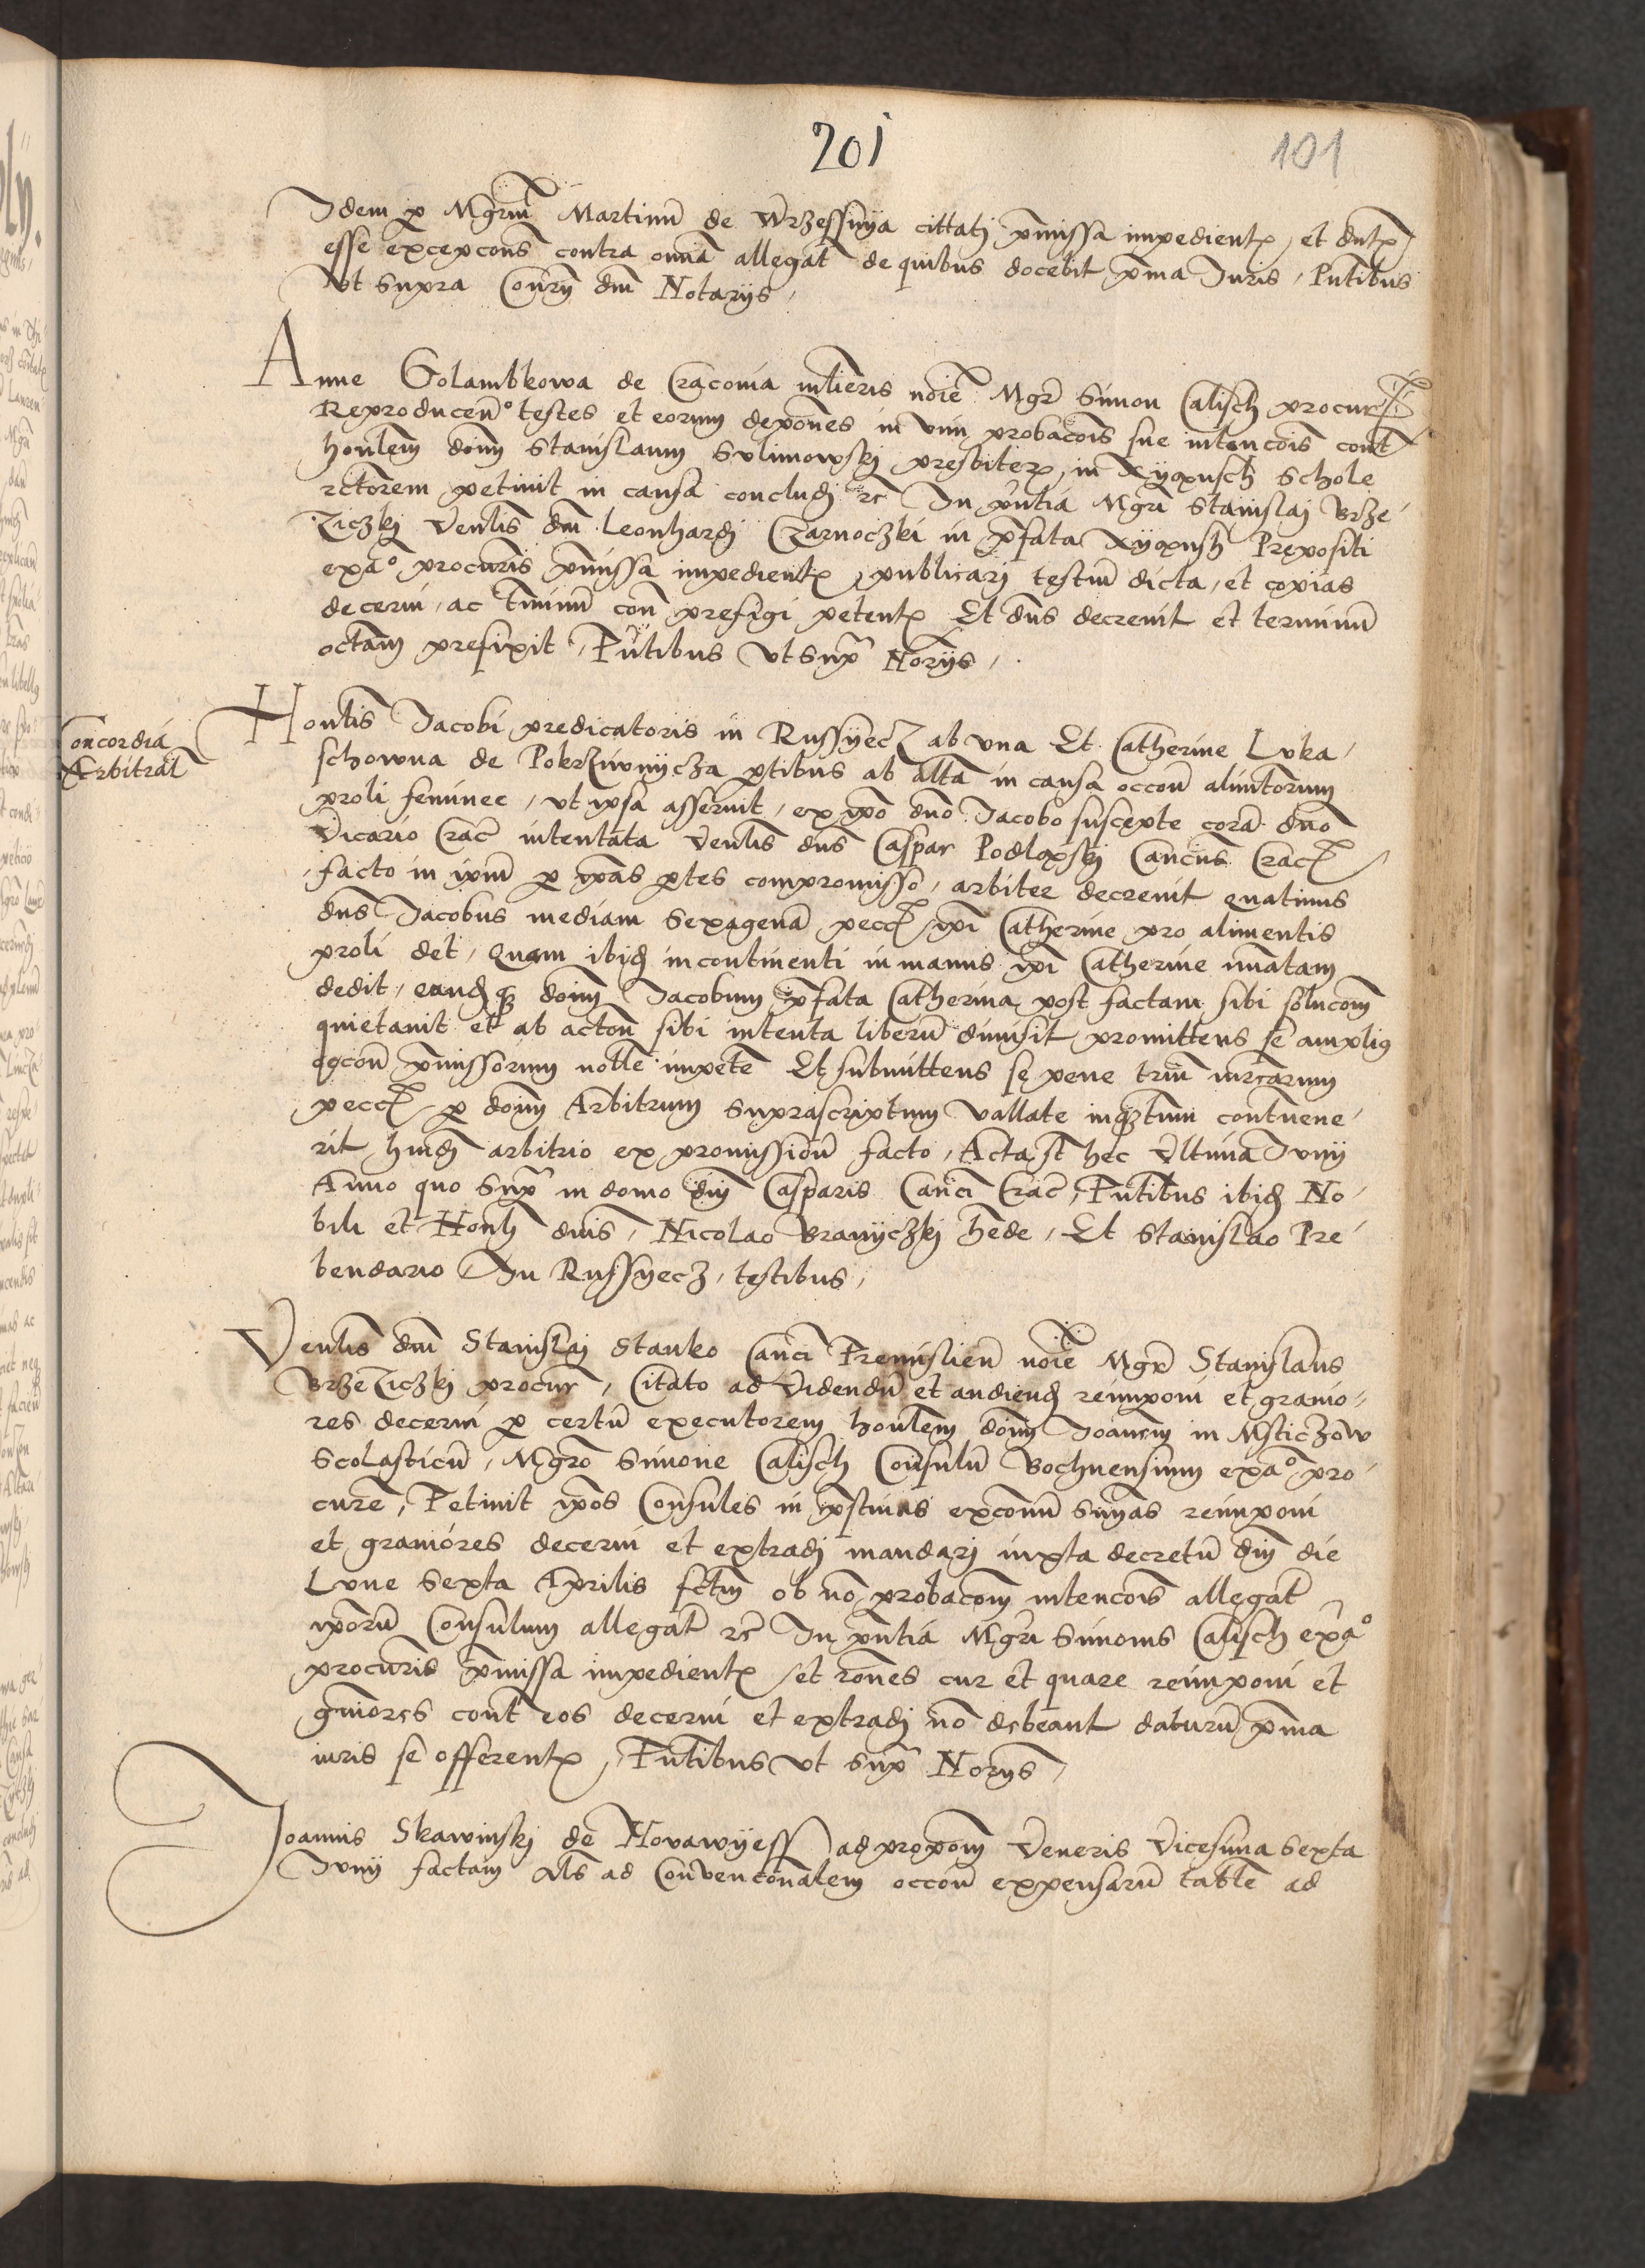 201
101
Idem p Mgrm Martinu de Wrzessnya cittatj pmissa impedient et dnt
esse excepcons contra omia allegat de quibus docebit pma Iuris, Pntibus
Vt supra Conrn dni Notarijs,
Anne Golambkowa de Cracouia mlieris noie Mgr Simon Calisch procur
Reproducen testes et eorum depones in vim probacois sue intencois cont
honlem dom Stanislaum Sulimowskj presbiter, in Xyqpusch Schole
rctorem petiuit in causa concludj rc In pntia Mgri Stanislaj Brze
ziczkj Venlis dni Leonhardj Czarnoczki in pfata Xyqpush Prepositi
exa procuris pmissa impedient, publicarj testiu dicta, et copias
decerni, ac tminu con prefigi petent Et dns decreuit et terminu
octam prefixit, Pntibus vt supr Norijs,
Concordia
Arbitral
Honlis Iacobi predicatoris in Russyecz ab vna Et Catherine Luka
schowna de Pokrziwnycza ptibus ab alta in causa occon alimtorum
proli feminee, vt ipsa asseruit, ex ipo dno Iacobo suscepte cora dno
Vicario Crac intentata Venlis dns Caspar Podlopskj Cancus Crac
facto in ipm p ipas ptes compromisso, arbiter decreuit quatinus
dns Iacobus mediam sexagena pecc, ipi Catherine pro alimentis
proli det, Quam ibid incontinenti in manus ipi Catherine imatam
dedit, eandq doim Iacobum pfata Catherina post factam sibi solucom
quietauit et ab acton sibi intenta liberu dimisit promittens se amplig
occon pmissorum nolle impete Et submittens se pene triu mrcarum
pecc p doim Arbitrum suprascriptum vallate inqtum contuene
rit hmdj arbitrio ex promission facto, Acta st hec Vltima Iunij
Anno quo supr in domo dni Casparis Canci Crac, Pntibus ibid No
bili et Honli dnis, Nicolao Branyczkj hede, Et Stanislao Pre
bendario In Russyecz, testibus,
Venlis dni Stanislaj Stanko Canci Premislien noie Mgr Stanislaus
Brzeziczkj procur, Citato ad Videndu et audiend reimponi et grauio
res decerni p certu executorem honlem doim Ioanem in Msticzow
Scolasticu, Mgro Simone Calisch Consulu Bochnensium exa pro
cure, Petiuit ipos Consules in pstinas exconu snias reimponi
et grauiores decerni et extradj mandarj iuxta decretu dni die
Lune Sexta Aprilis fctm ob no probacom intencois allegat
iporu Consulum allegat rc In pntia Mgri Simonis Calisch exa
procuris pmissa impedient, et rones cur et quare reimponi et
gniores cont eos decerni et extradj no debeant daturu pma
iuris se offerent, Pntibus vt supr Norijs,
Ioannis Skawinskj de Novawyess ad propom Veneris Vicesima sexta
Iunij factam als ad Convenconalem occon expensaru taxte ad